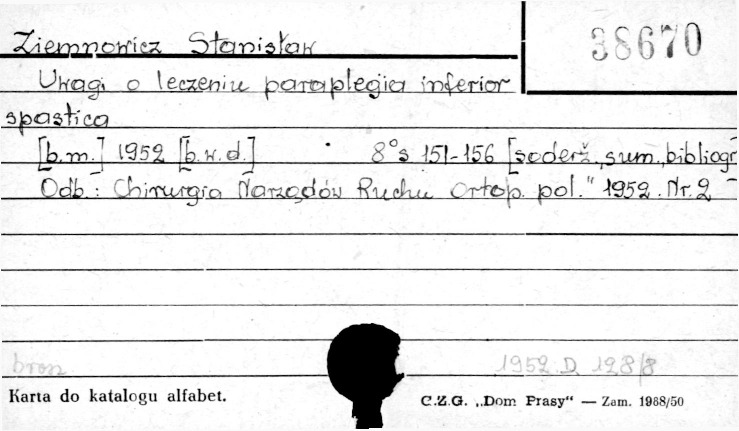 Ziemnowicz Stanisław
38670
Uwagi o leczeniu paraplegia inferior
spastica
[b.m.] 1952 [b.w.d.] 8° s 151-156 [soderž., sum., bibliogr
Odb.: Chirurgia Narządów Ruchu Ortop. pol." 1952. Nr. 2 -
brosz 1952 D 128/8
Karta do katalogu alfabet.
C.Z.G. „Dom Prasy“ — Zam. 1988/50